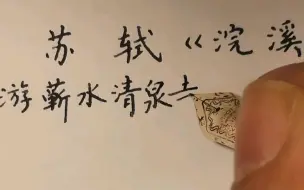 苏轼《浣溪
游蕲水清泉